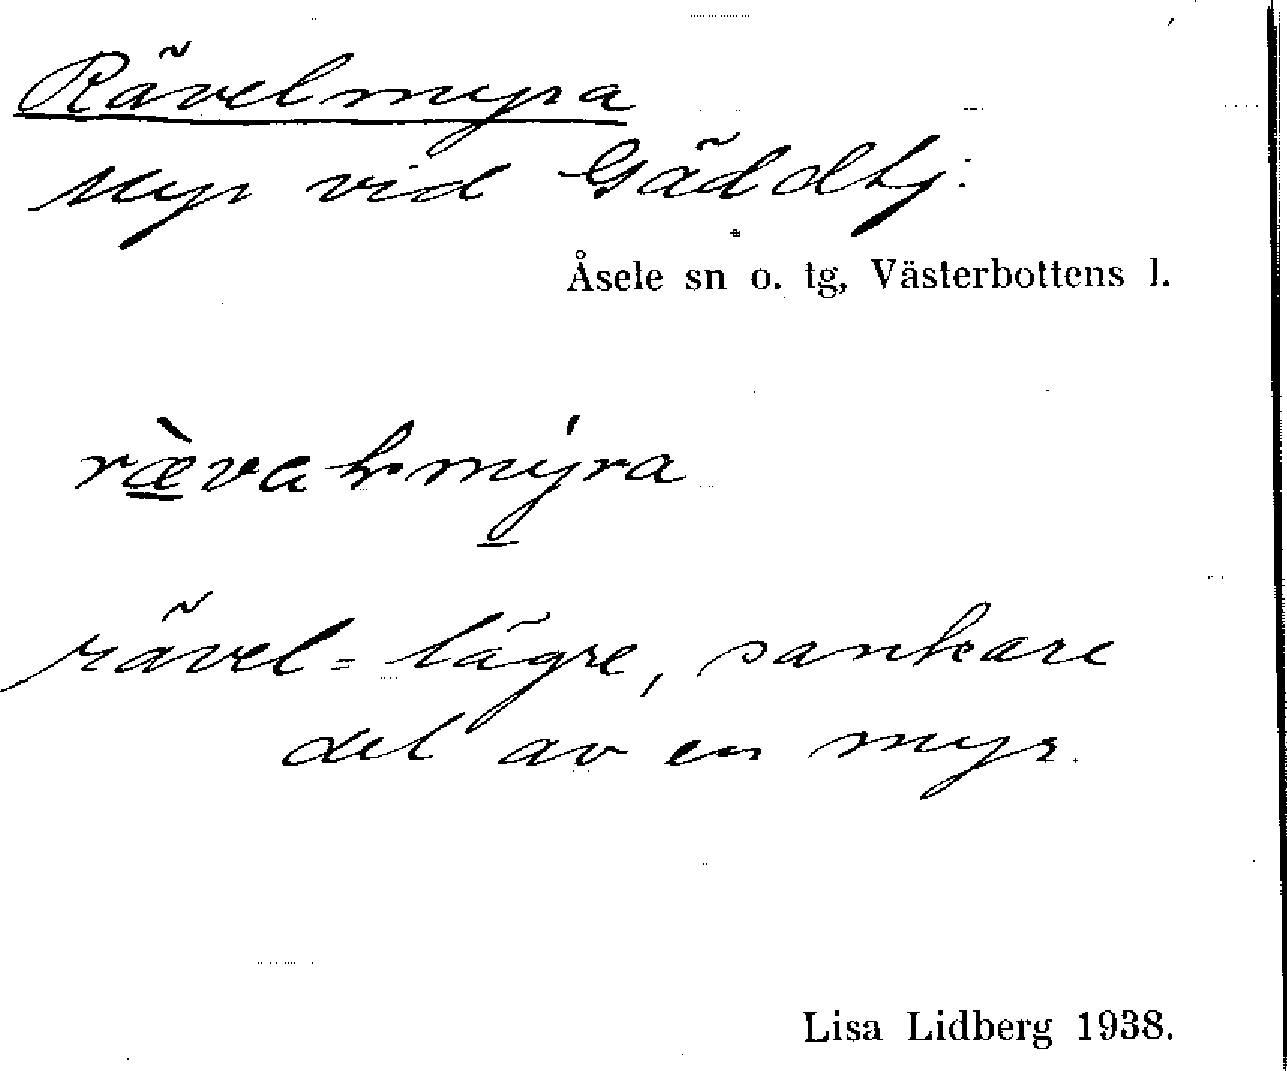 Rävelmyra
Myr vid Gäddtj.
Åsele sn o. tg, Västerbottens l.
rævaɫmýra
rävel = lägre, sankare
del av en myr.
Lisa Lidberg 1938.